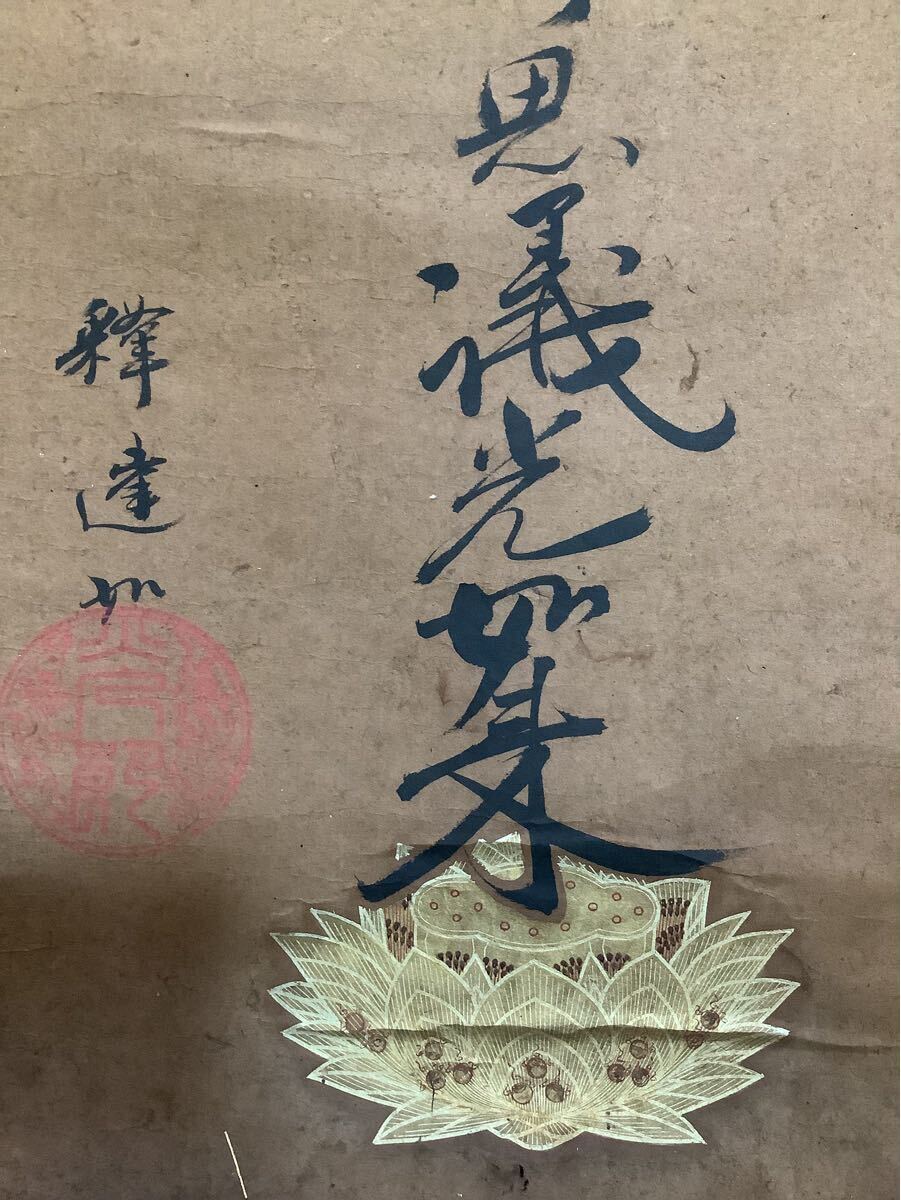 思議光如来
釋達如